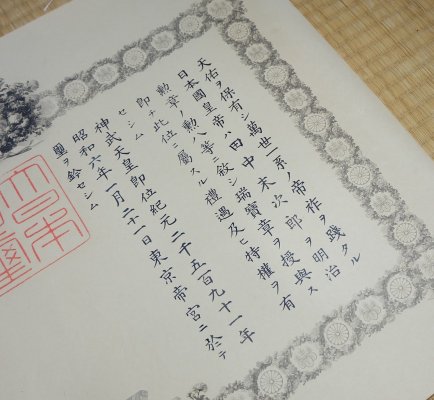 天佑ヲ保有シ萬世一系ノ帝祚ヲ踐タル
日本國皇帝ハ田中末次郎ヲ明治
勲章ノ勲八等ニ敘シ瑞寶章ヲ授與ス
即チ此位ニ屬スル禮遇及ヒ特權ヲ有
セシム
神武天皇即位紀元二千五百九十一年
昭和六年一月二十一日東京帝宮ニ於テ
璽ヲ鈐セシム
大日本